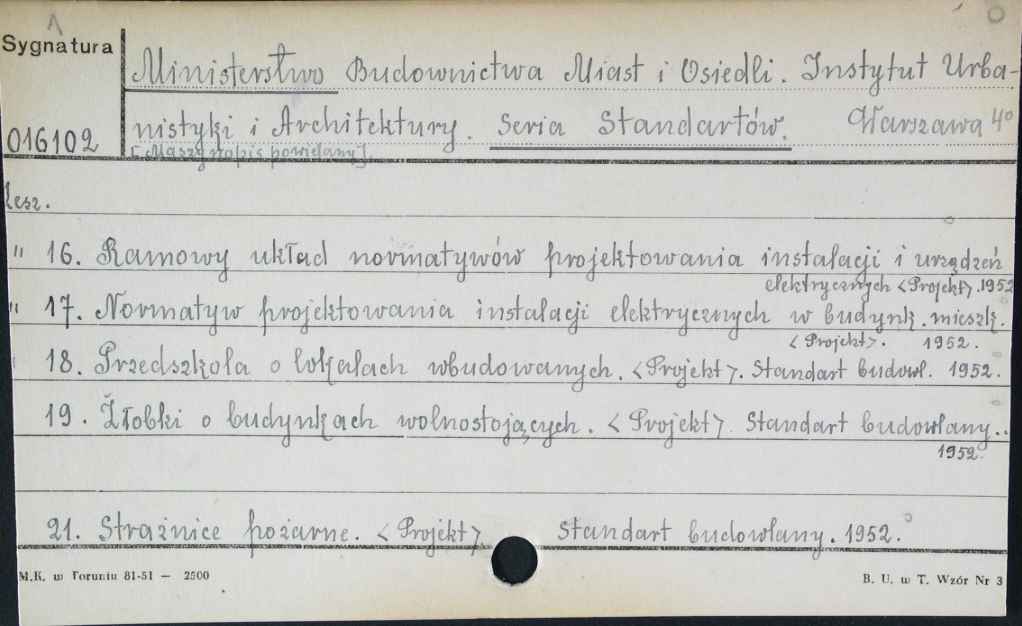 Sygnatura
Ministerstwo Budownictwa Miast i Osiedli. Instytut Urba-
016102 nistyki i Architektury. Seria Standartów. Warszawa 4°
[Maszynopis powielany].
Zesz.
" 16. Ramowy układ normatywów projektowania instalacji i urządzeń
elektrycznych <Projekt>. 1952
" 17. Normatyw projektowania instalacji elektrycznych w budynk. mieszk.
<Projekt>. 1952.
18. Przedszkola o lokalach wbudowanych. <Projekt>. Standart budowl. 1952.
19. Żłobki o budynkach wolnostojących. <Projekt>. Standart budowlany..
1952.
21. Strażnice pożarne. <Projekt> Standart budowlany. 1952.
M.K. w Toruniu 81-51 — 2500 B. U. w T. Wzór Nr 3